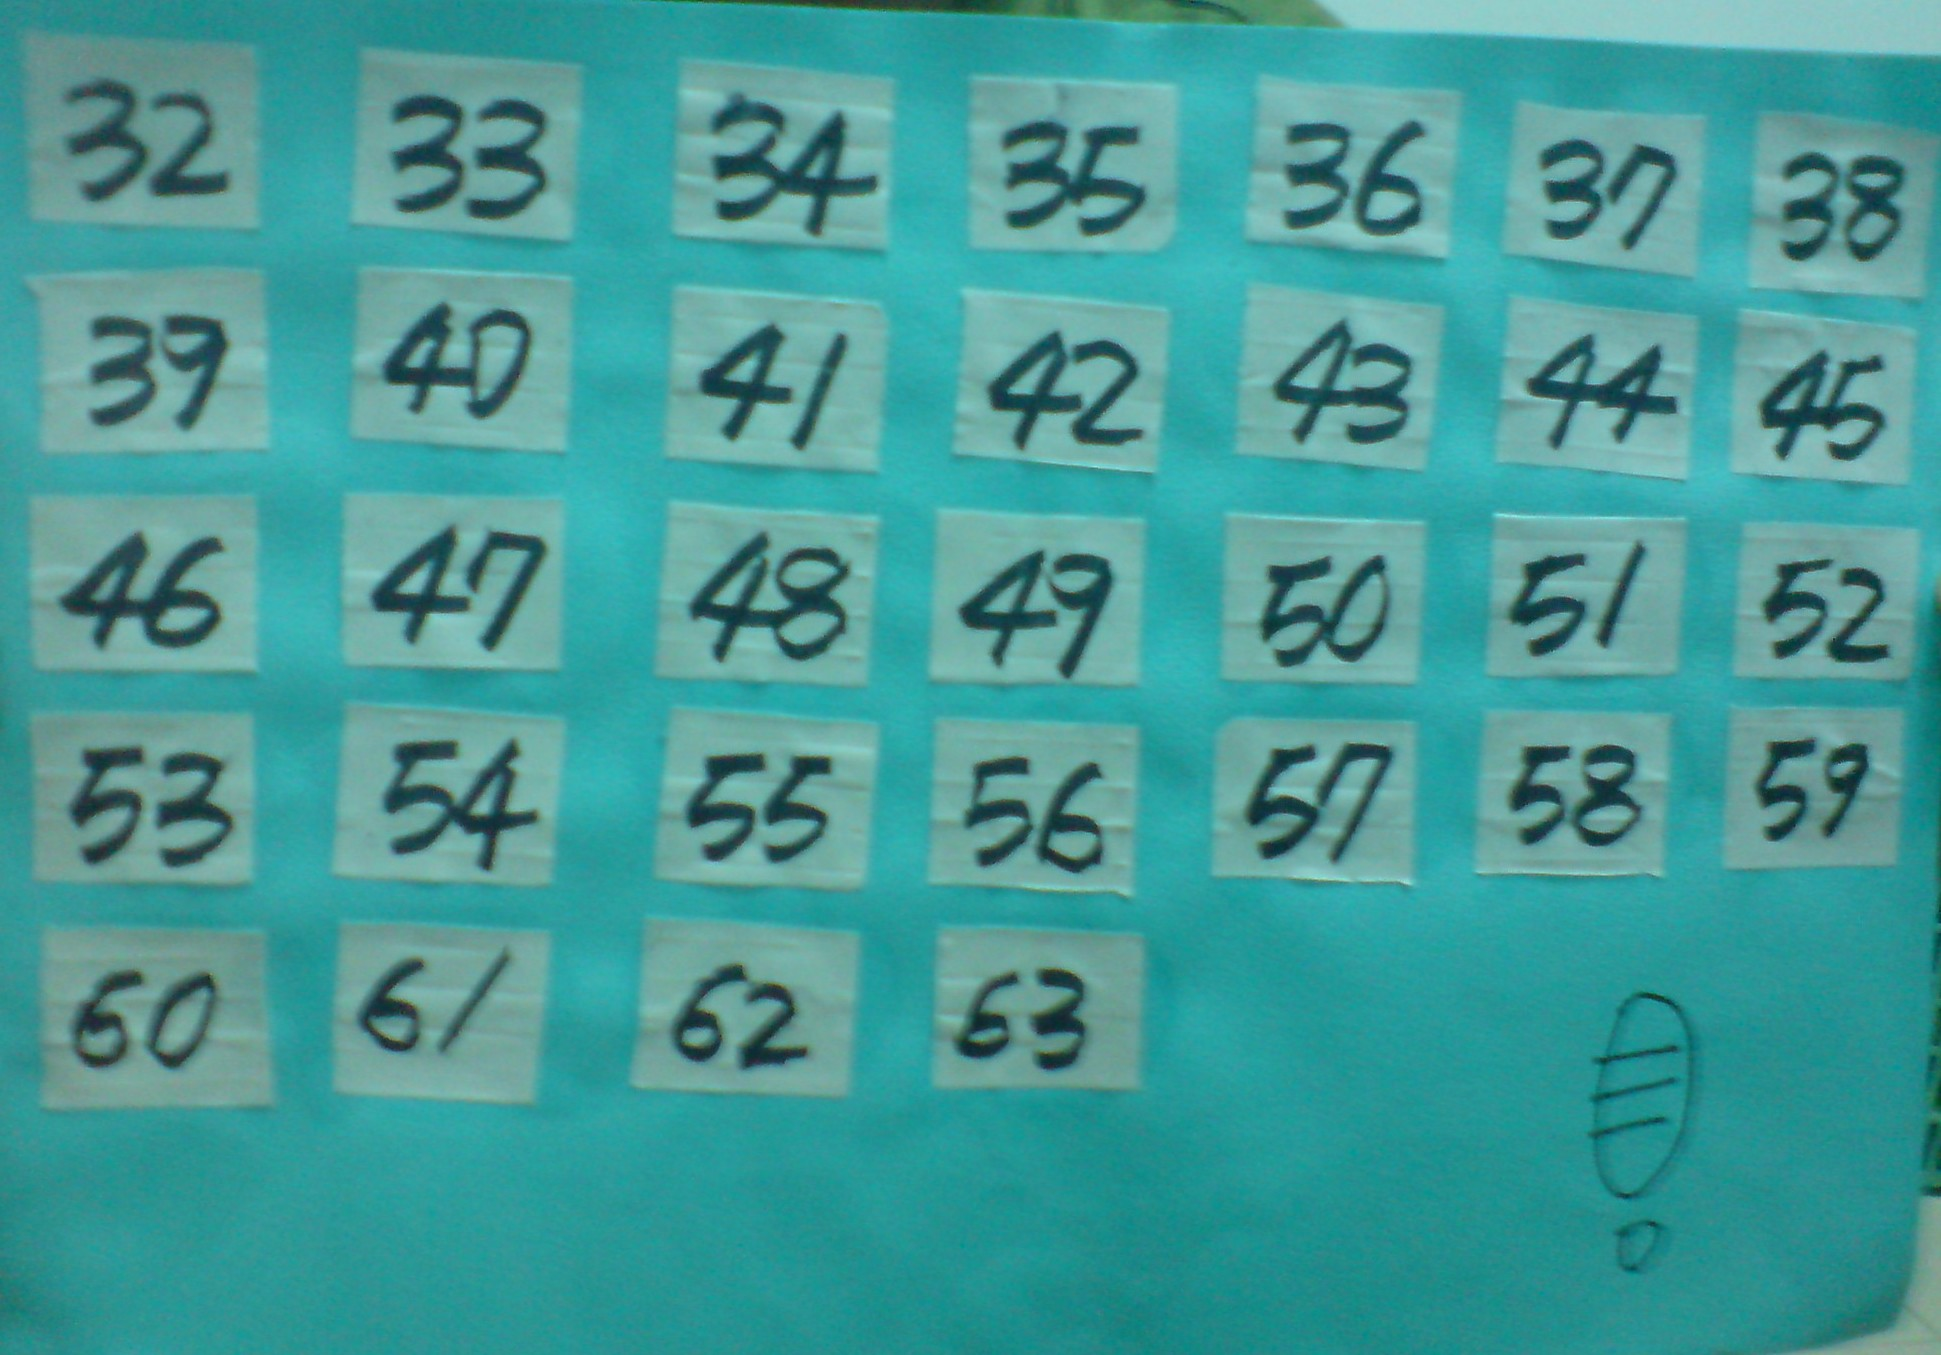 32 33 34 35 36 37 38
39 40 41 42 43 44 45
46 47 48 49 50 51 52
53 54 55 56 57 58 59
60 61 62 63